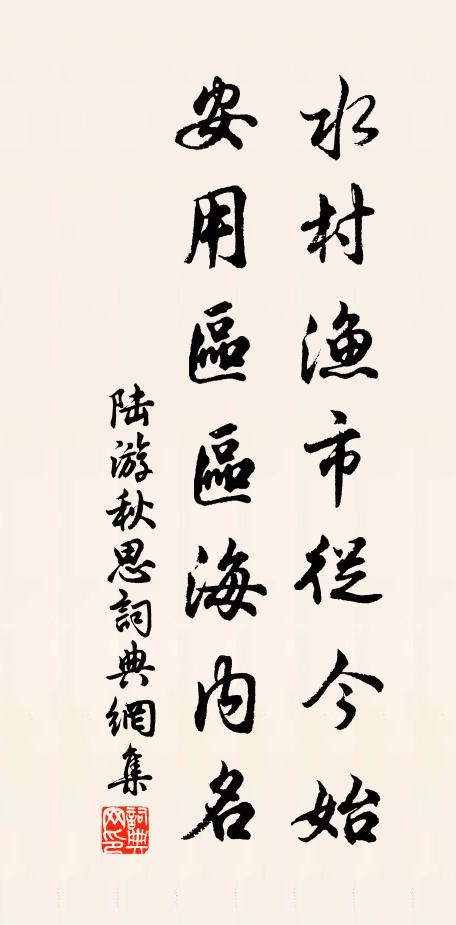 水村漁市從今始
安用區區海内名
陆游秋思詞典網集
詞典网印